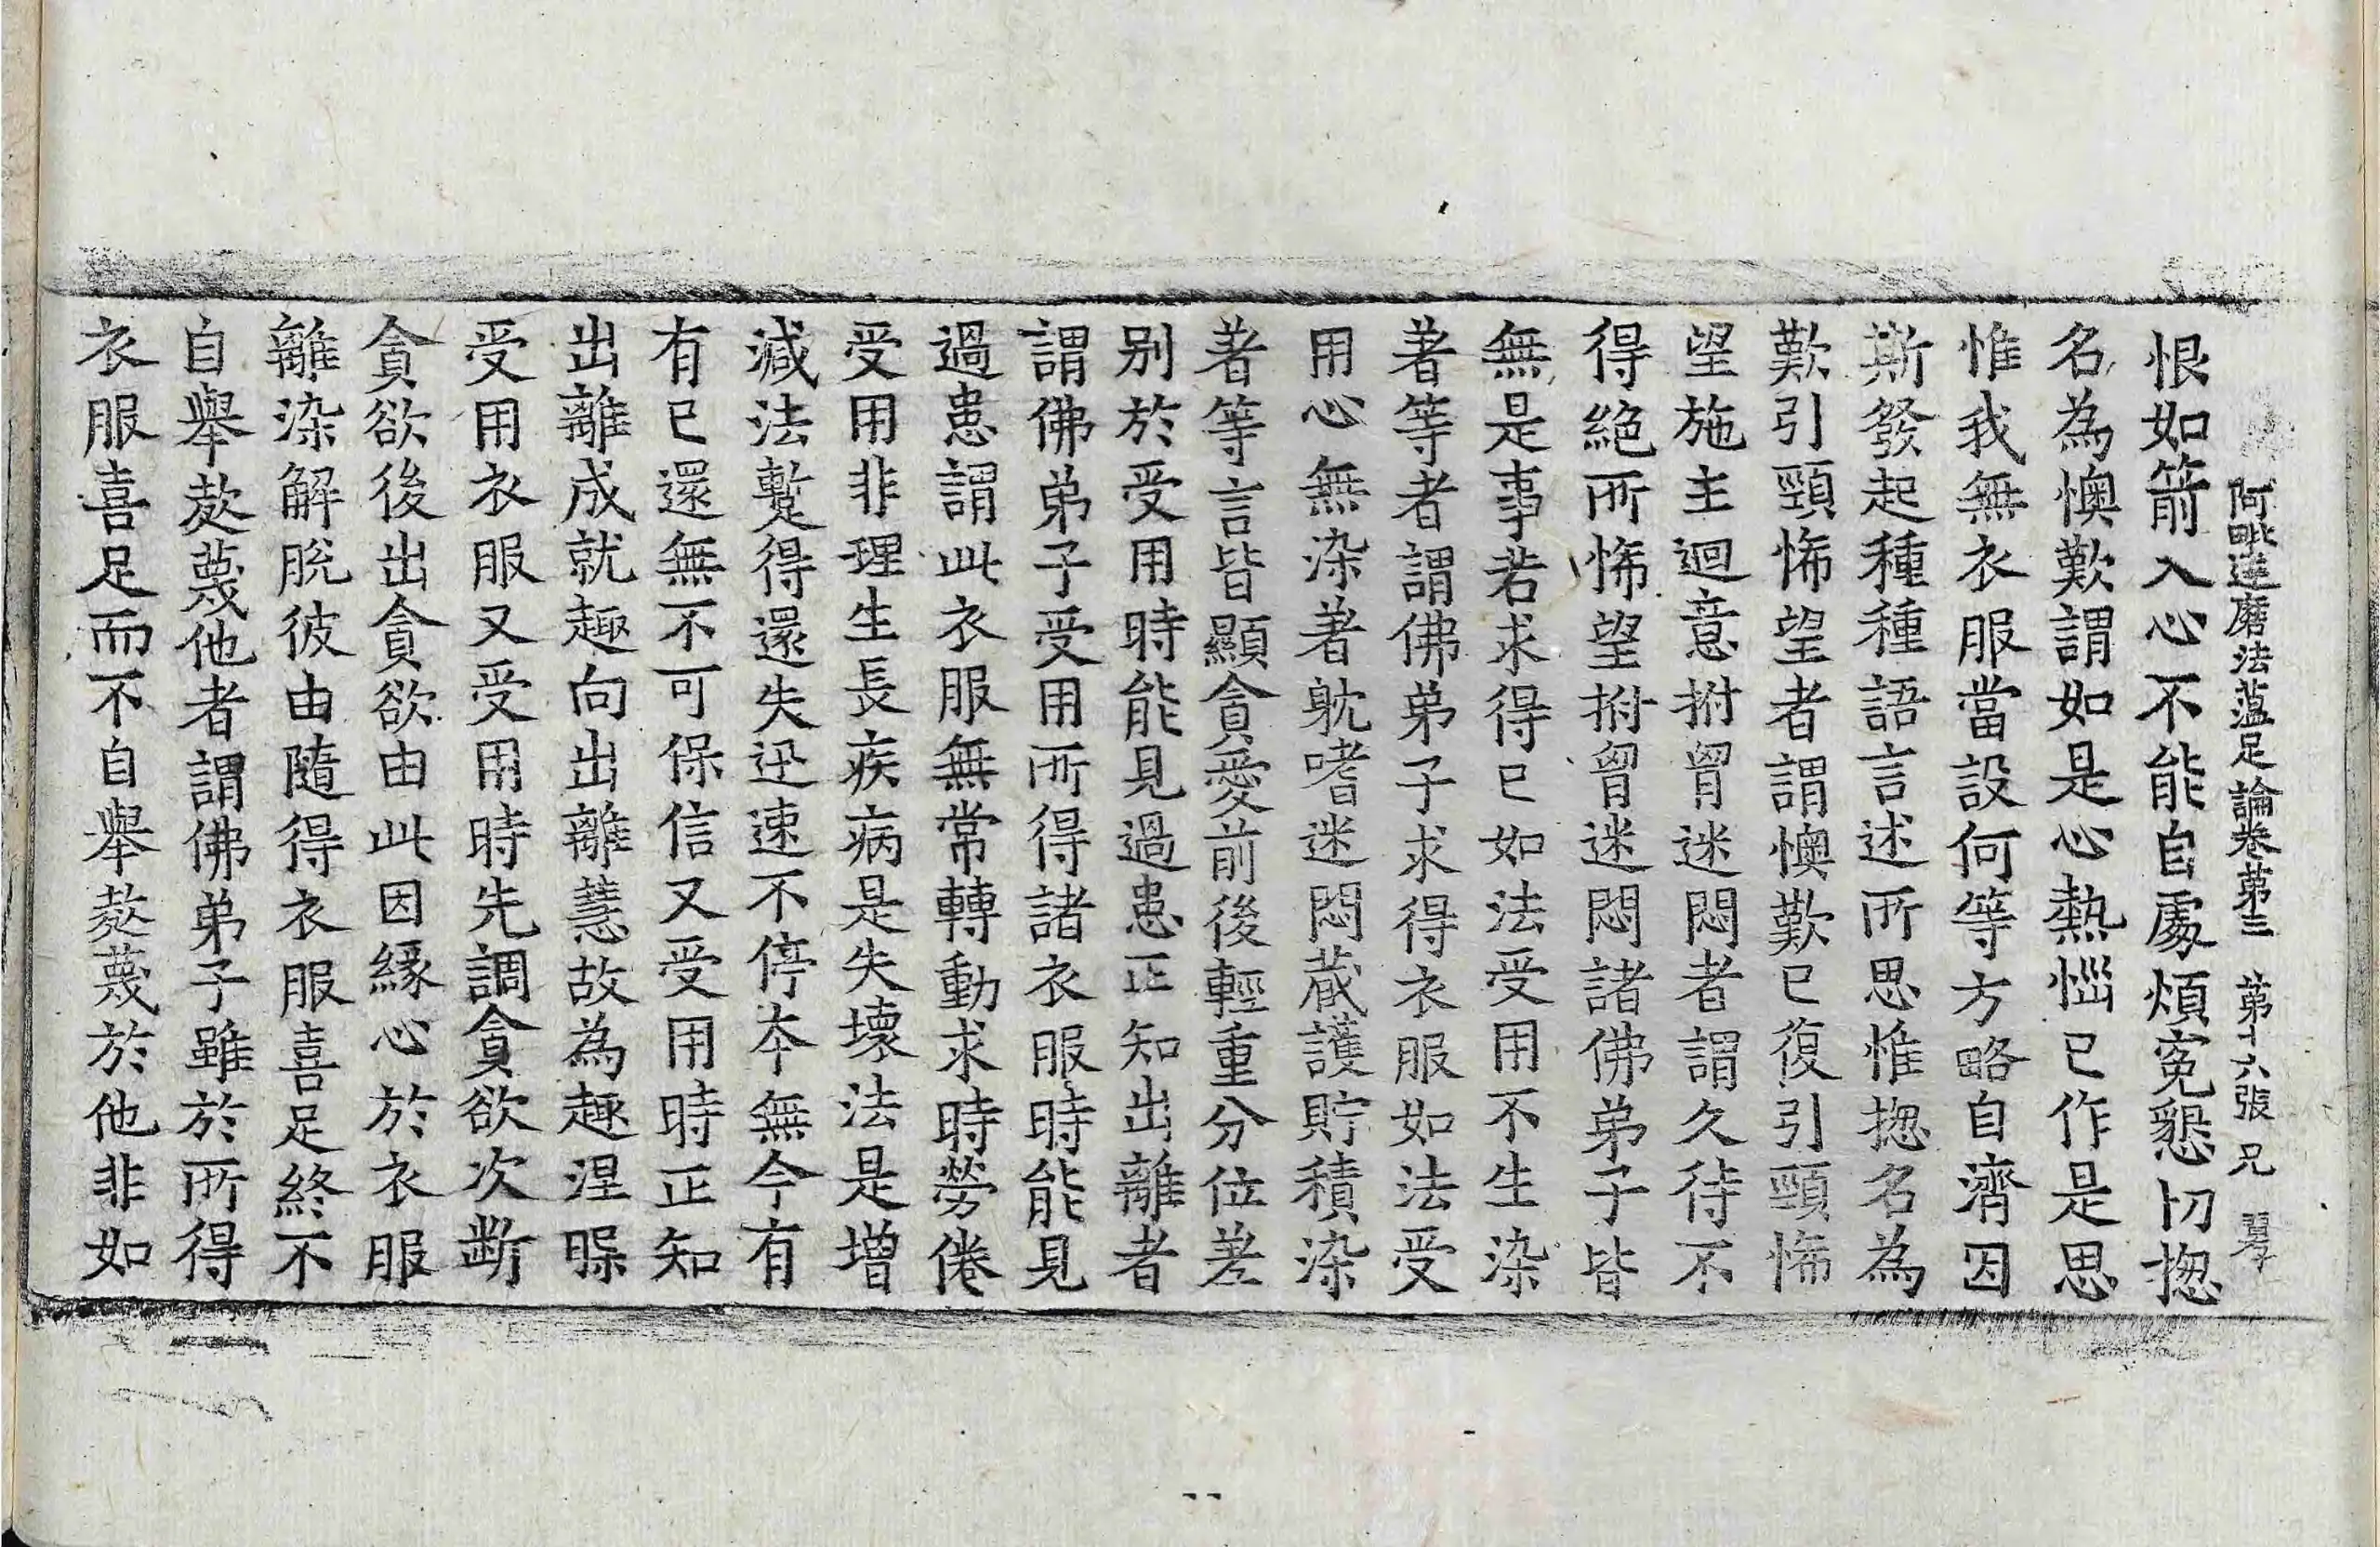 阿毗達磨法蕴足論卷第三 第十六張 兄
恨如箭入心不能自處煩寃懇切揔
名為懊歎謂如是心熱惱已作是思
惟我無衣服當設何等方略自濟因
斯發起種種語言述所思惟揔名為
歎引頸悕望者謂懊歎已復引頸悕
望施主迴意拊胷迷悶者謂久待不
得絶所悕望拊胷迷悶諸佛弟子皆
無是事若求得已如法受用不生染
著等者謂佛弟子求得衣服如法受
用心無染著躭嗜迷悶蔵護貯積染
著等言皆顯貪愛前後輕重分位差
别於受用時能見過患正知出離者
謂佛弟子受用所得諸衣服時能見
過患謂此衣服無常轉動求時勞倦
受用非理生長疾病是失壞法是增
減法蹔得還失迅速不停夲無今有
有已還無不可保信又受用時正知
出離成就趣向出離慧故為趣涅槃
受用衣服又受用時先調貪欲次斷
貪欲後出貪欲由此因緣心於衣服
離染解脫彼由隨得衣服喜足終不
自舉㤥蔑他者謂佛弟子雖於所得
衣服喜足而不自舉㤥蔑於他非如